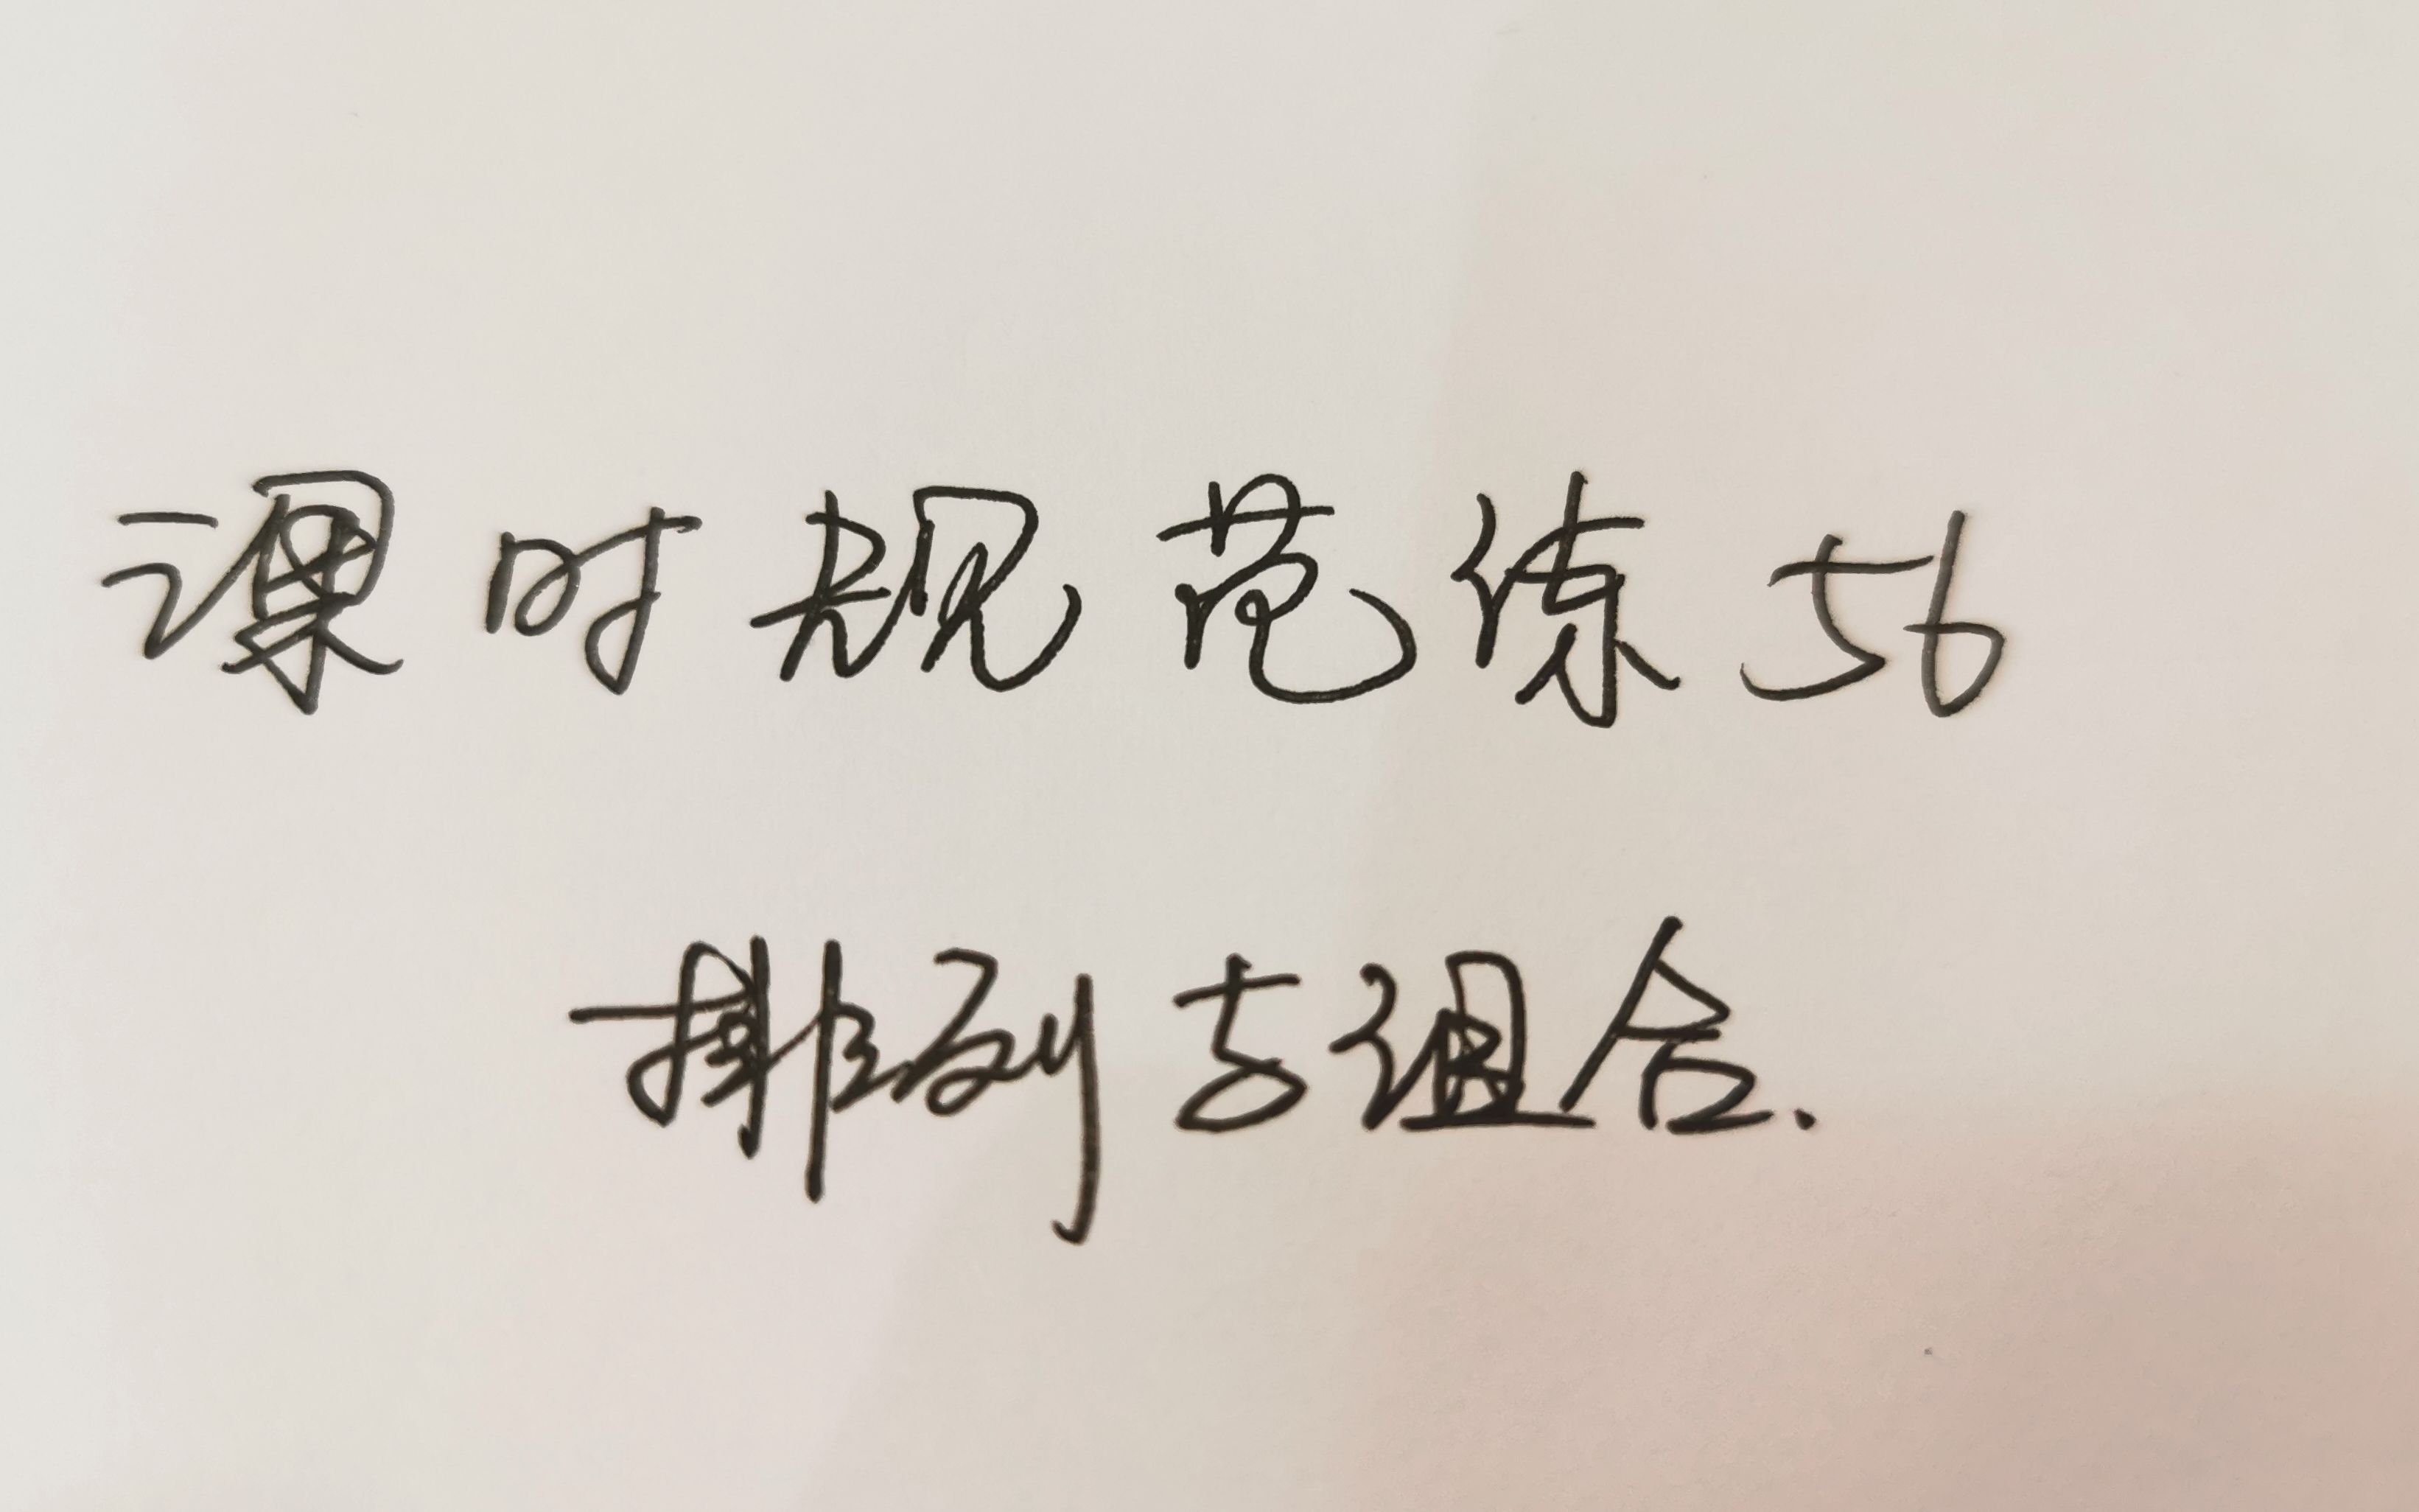 课时规范练56
排列与组合.